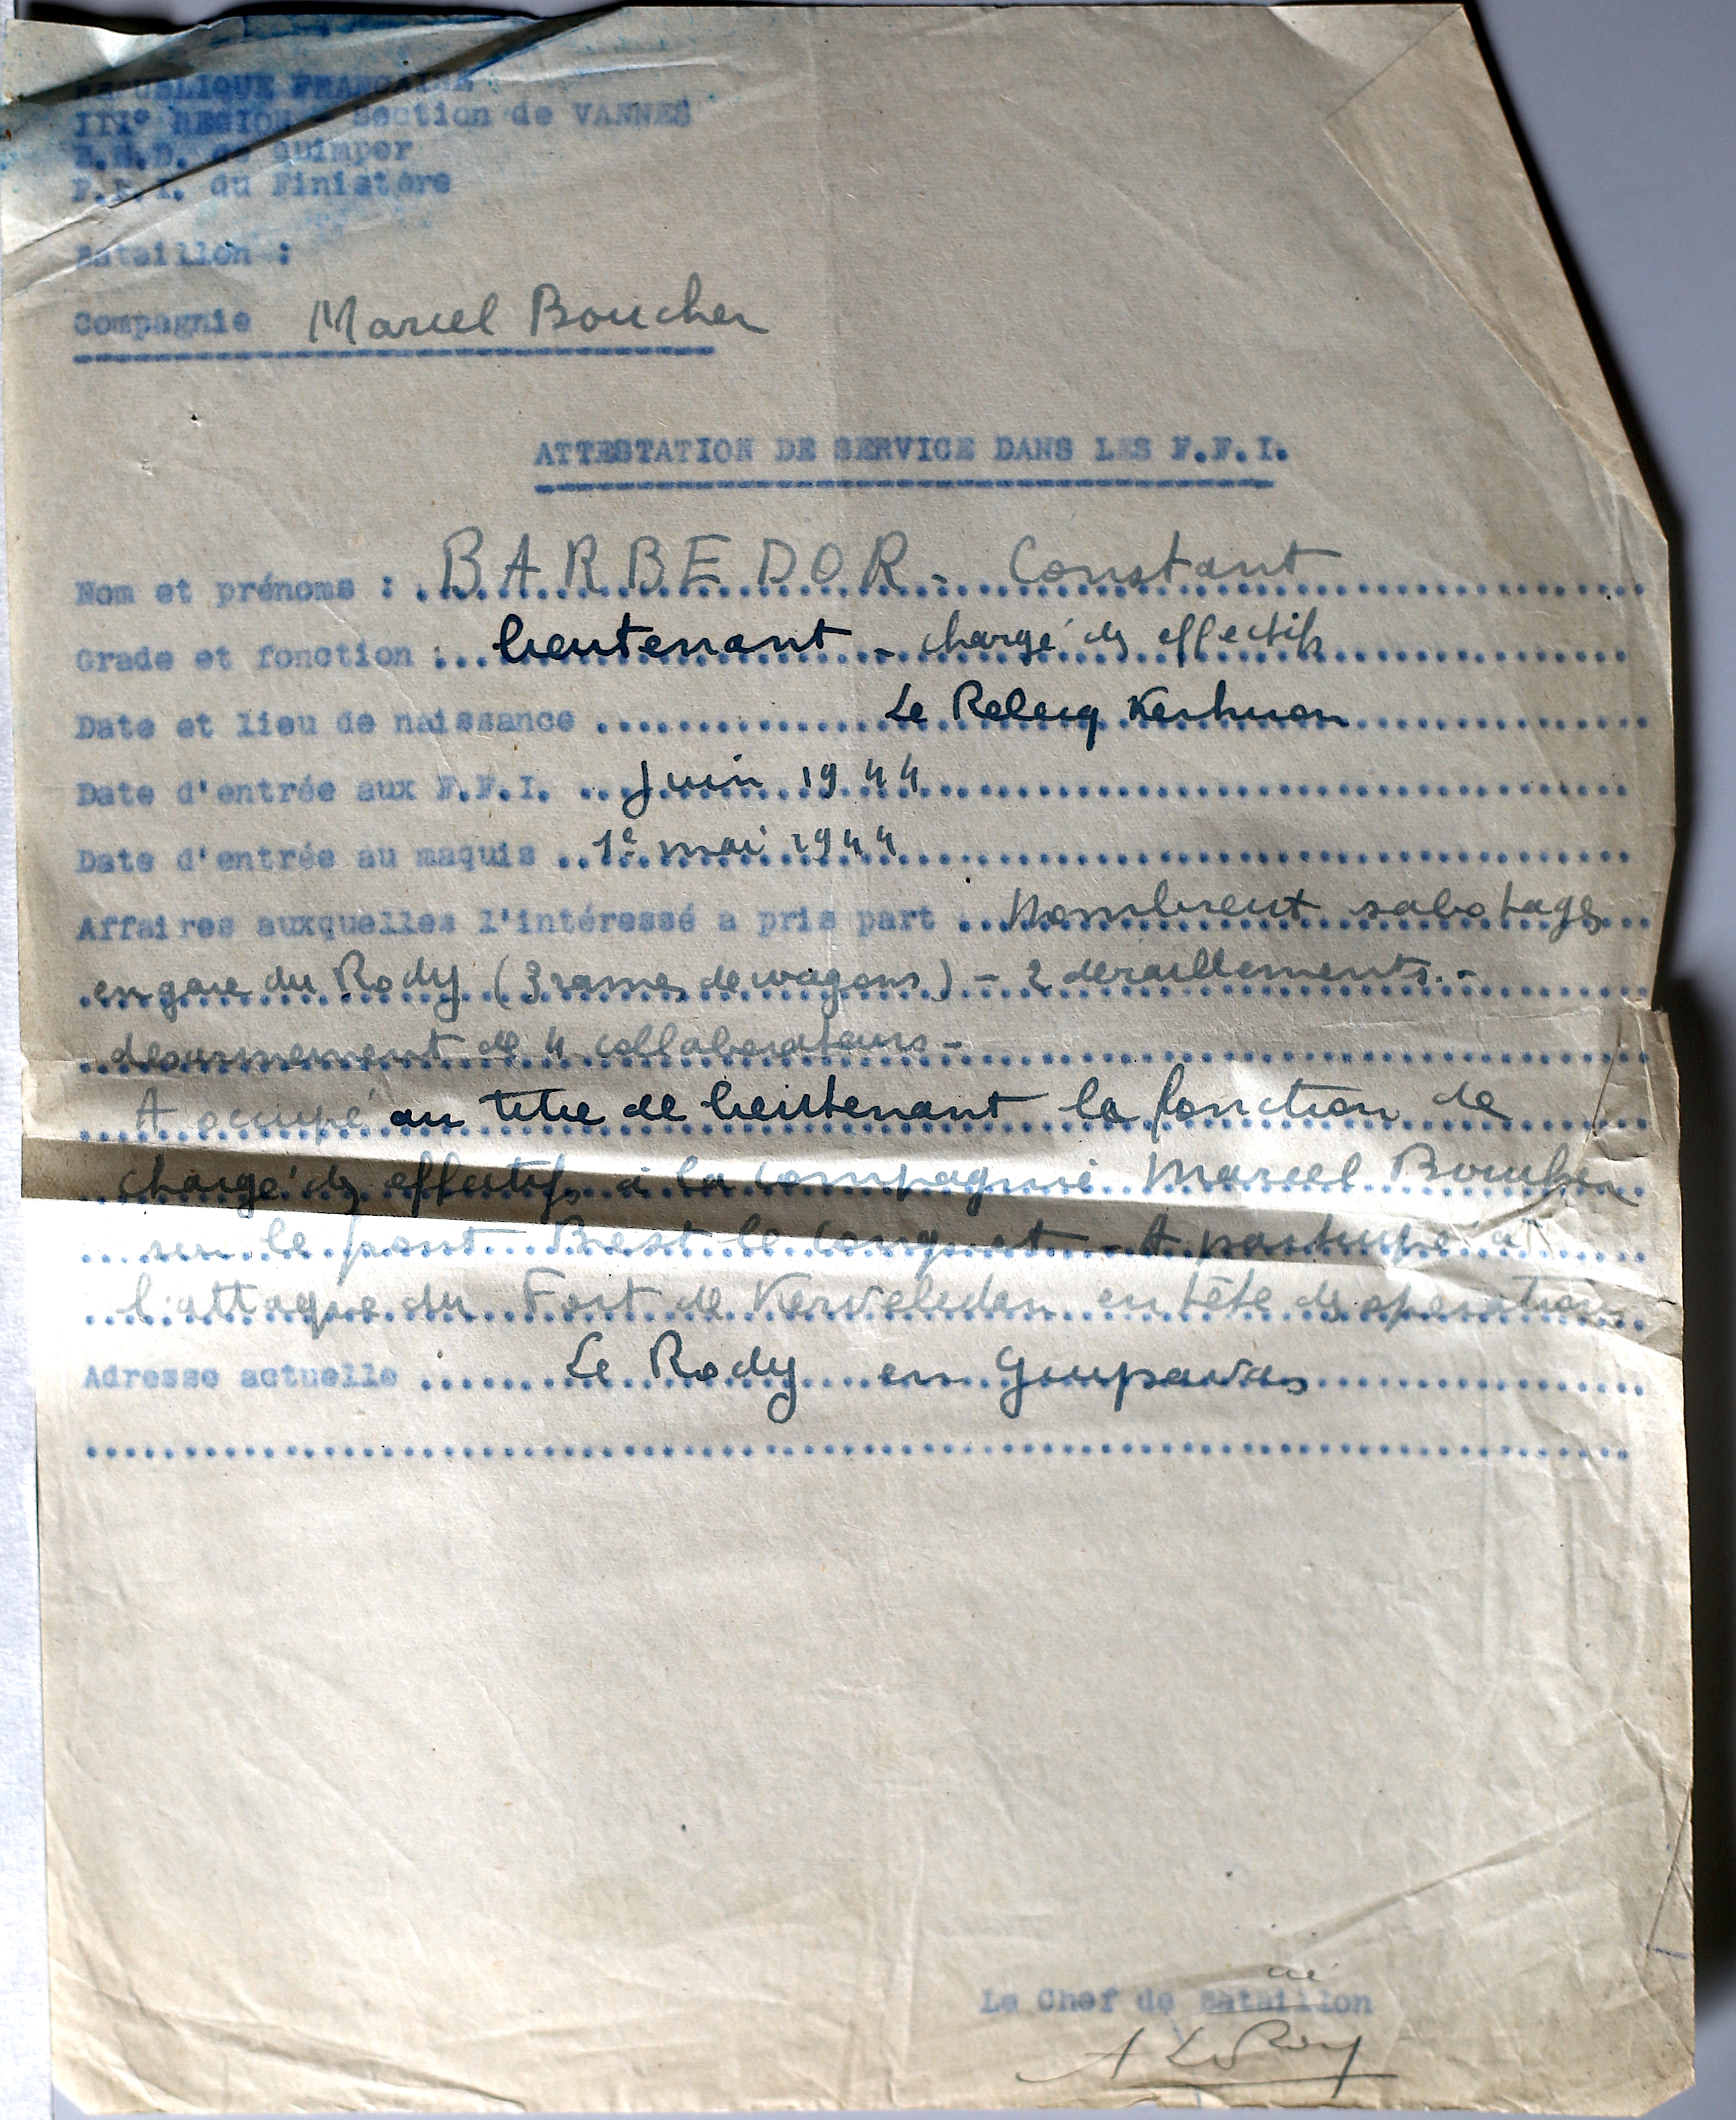 REPUBLIQUE FRANCAISE
IIIe REGION - Section de VANNES
de Quimper
F.F.I. du Finistère
Bataillon :
Compagnie Marcel Boucher
ATTESTATION DE SERVICE DANS LES F.F.I.
Nom et prénoms : BARBEDOR - Constant
Grade et fonction : lieutenant - chargé des effectifs
Date et lieu de naissance Le Relecq Kerhuon
Date d'entrée aux F.F.I. Juin 1944
Date d'entrée au maquis 1e mai 1944
Affaires auxquelles l'intéressé a pris part Nombreux sabotages
en gare du Rody (3 rames de wagons) - 2 deraillements. -
desarmement de 4 collaborateurs -
A occupé au titre de lieutenant la fonction de
chargé des effectifs à la compagnie Marcel Boucher
sur le front Brest-le Conquet - A participé à
l'attaque du Fort de Kerveledan en tête des operations
Adresse actuelle Le Rody en Guipavas
Le Chef de Bataillon
A Le Roy